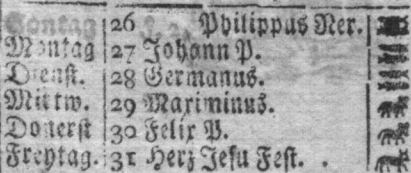 Sontag 26 Philippus Ner.
Montag 27 Johann P.
Dienst. 28 Germanus.
Mittw. 29 Maximinus.
Donerst 30 Felix P.
Freytag. 31 Herz Jesu Fest.